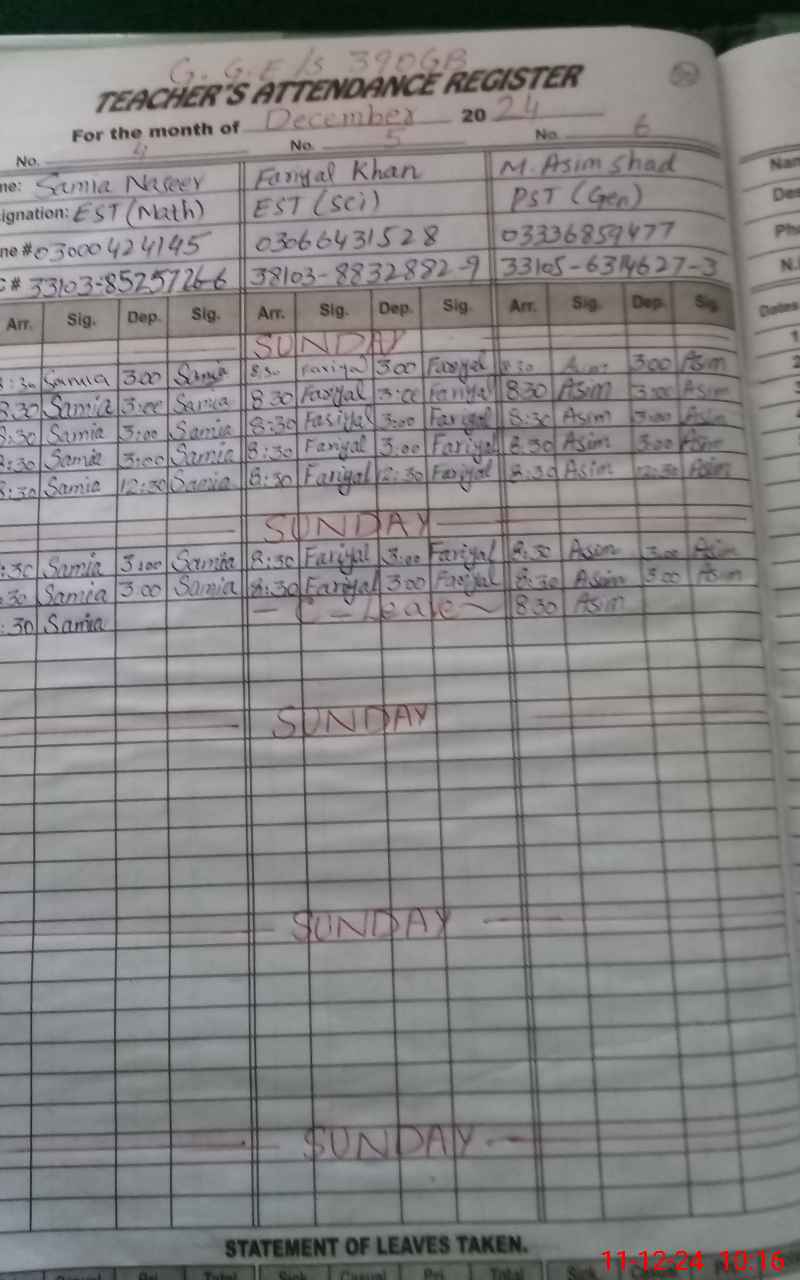 G.G.E/S 390GB
TEACHER'S ATTENDANCE REGISTER
For the month of December 2024
No. 4 No. 5 No. 6
ne: Samia Naseer Fariyal Khan M. Asim Shad Nam
ignation: EST (Math) EST (Sci) PST (Gen) Des
ne # 03000424145 03066431528 03336859477 Pho
C# 33103-8525726-6 38103-8832882-9 33105-6314627-3 N.I
Arr. Sig. Dep. Sig. Arr. Sig. Dep. Sig. Arr. Sig. Dep. Sig. Dates
SUNDAY 1
8:30 Samia 3.00 Samia 8:30 Fariyal 3.00 Fariyal 8:30 Asim 3.00 Asim 2
8.30 Samia 3:00 Samia 8 30 Fariyal 3:00 Fariyal 8 30 Asim 3:00 Asim 3
8:30 Samia 3:00 Samia 8:30 Fariyal 3:00 Fariyal 8:30 Asim 3:00 Asim 4
8:30 Samia 3:00 Samia 8:30 Fariyal 3:00 Fariyal 8:30 Asim 3:00 Asim
8:30 Samia 12:30 Samia 8:30 Fariyal 12:30 Fariyal 8:30 Asim 12:30 Asim
SUNDAY
:30 Samia 3:00 Samia 8:30 Fariyal 3:00 Fariyal 8:30 Asim 3.00 Asim
:30 Samia 3.00 Samia 8:30 Fariyal 3.00 Fariyal 8:30 Asim 3.00 Asim
:30 Samia - C - Leave 8 30 Asim
SUNDAY
SUNDAY
SUNDAY
STATEMENT OF LEAVES TAKEN.
Casual Pri Total Sick Casual Pri Total Sick Casual
11-12-24 10:16